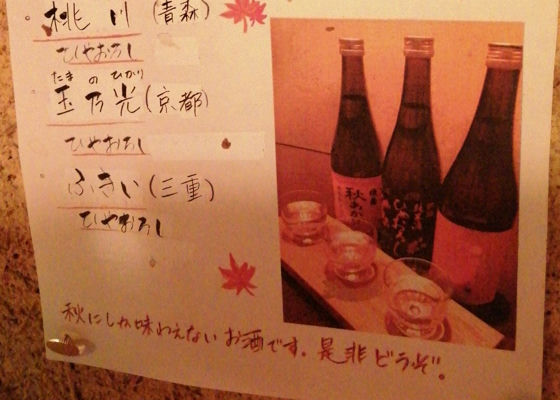 桃川(青森)
ひやおろし
たまのひかり
玉乃光(京都)
ひやおろし
ふきい(三重)
ひやおろし
秋にしか味わえないお酒です。是非どうぞ。
秋あがり